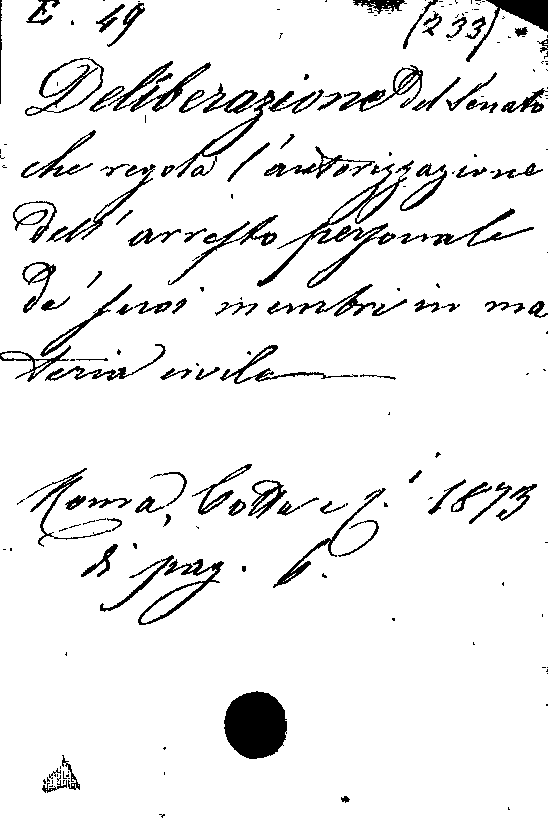 E. 49 (233)
Deliberazione del Senato
che regola l'autorizzazione
dell' arresto personale
de' suoi membri in ma
teria civile
Roma, Cotta e C.i 1873
di pag. 6.